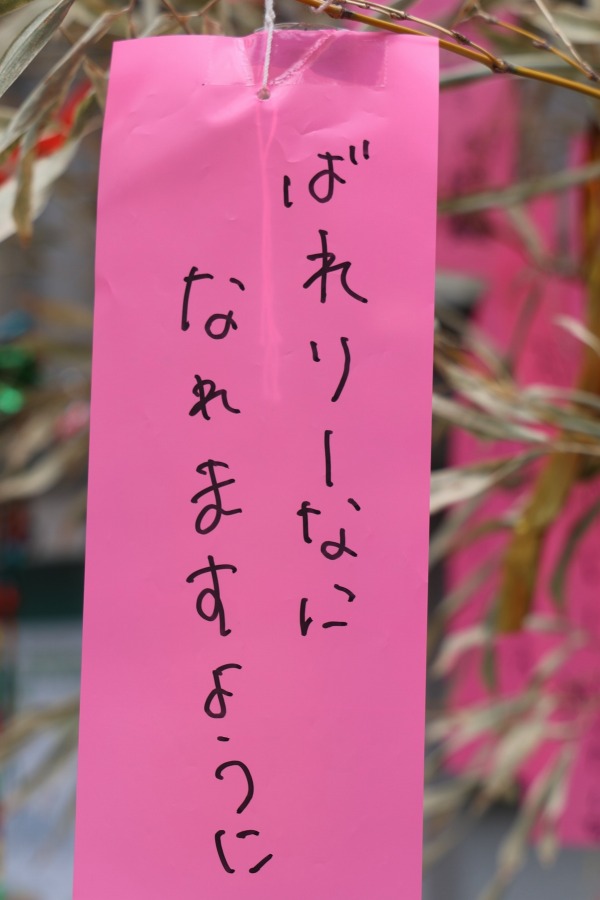 ばれりーなに
なれますように